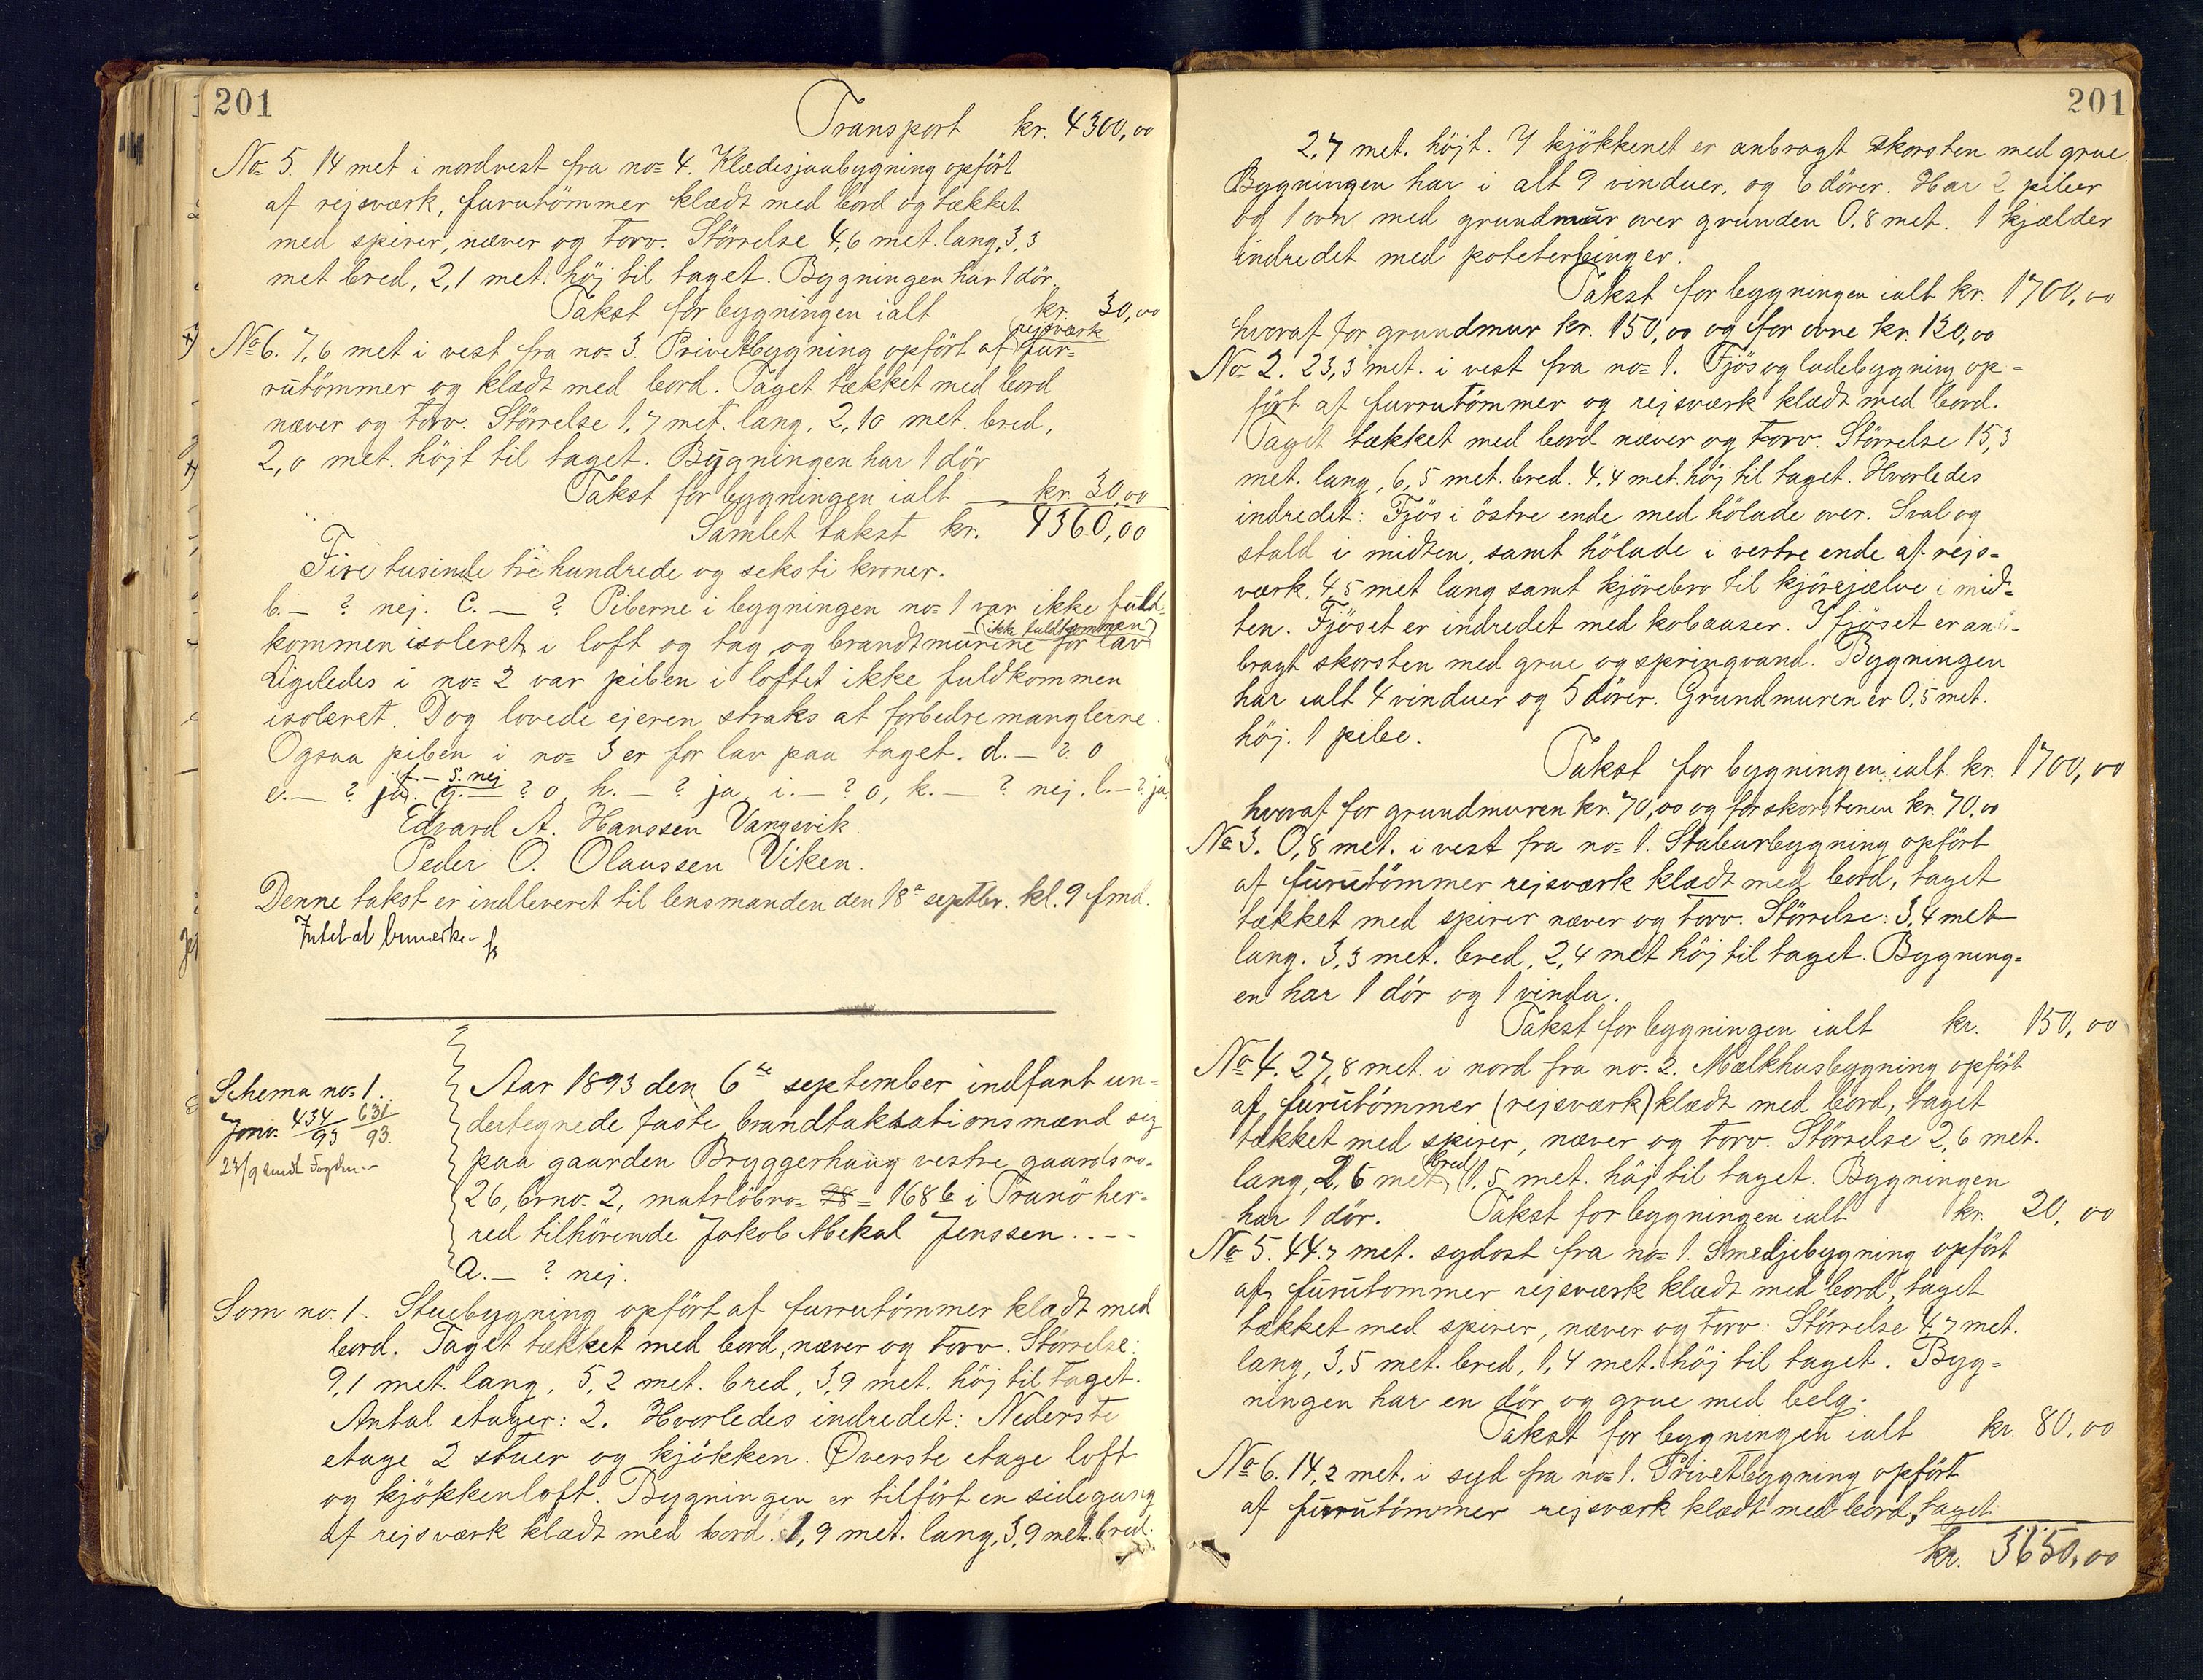 201
Transport kr. 4300,00
No 5. 14 met i nordvest fra no 4. Klædesjaabygning opfört
af rejsværk, furutömmer klædt med bord og tækket
med spirer, næver og torv. Störrelse 4,6 met. lang, 3,3
met bred, 2,1 met. höj til taget. Bygningen har 1 dör.
Takst for bygningen ialt kr. 30,00
rejsværk
No 6. 7,6 met i vest fra no 3. Privetbygning opfört af fur=
rutömmer og klædt med bord. Taget tækket med bord
næver og torv. Störrelse 1,7 met. lang, 2,10 met. bred,
2,0 met. höjt til taget. Bygningen har 1 dör
Takst for bygningen ialt kr. 30,00
Samlet takst kr. 4360,00
Fire tusinde tre hundrede og seksti kroner.
b. — ? nej. C. — ? Piberne i bygningen no 1 var ikke fuld
(ikke fuldkommen)
kommen isoleret i loft og tag og brandtmurene for lav
Ligeledes i no 2 var piben i loftet ikke fuldkommen
isoleret. Dog lovede ejeren straks at forbedre manglerne.
Ogsaa piben i no 3 er for lav paa taget. d. — ? 0
f. — ?. nej
e. — ? ja. g. — ? 0, h. — ? ja, i. — ? 0, k. — ? nej. l. — ? ja
Edvard A. Hanssen Vangsvik.
Peder O. Olaussen Viken.
Denne takst er indleveret til lensmanden den 18de septbr. kl. 9 fmd.
Intet at bemærke
Schema no 1.
Jonr. 434/93 631/93.
23/9 sendt Fogden
Aar 1893 den 6te september indfant un=
dertegnede faste brandtaksationsmænd sig
paa gaarden Bryggerhaug vestre gaards no.
26, brno. 2, matrlöbno 98 = 168 b i Tranö her=
red tilhörende Jakob Mekal Jenssen . . - -
a. — ? nej.
Som no. 1. Stuebygning opfört af furrutömmer klædt med
bord. Taget tækket med bord, næver og torv. Störrelse:
9,1 met. lang, 5,2 met. bred, 3,9 met. höj til taget.
Antal etager: 2. Hvorledes indredet: Nederste
etage 2 stuer og kjökken. Øverste etage loft
og kjökkenloft. Bygningen er tilfört en sidegang
af rejsværk klædt med bord. 1,9 met. lang, 3,9 met. bred.
201
2,7 met. höjt. I kjökkenet er anbragt skorsten med grue.
Bygningen har i alt 9 vinduer, og 6 dörer. Har 2 piber
og 1 ovn med grundmur over grunden 0,8 met. 1 kjælder
indredet med poteterbinger.
Takst for bygningen ialt kr. 1700,00
hvoraf for grundmur kr. 150,00 og for ovne kr. 130,00
No 2. 23,3 met. i vest fra no 1. Fjös og ladebygning op=
fört af furrutömmer og rejsværk klædt med bord.
Taget tækket med bord næver og torv. Störrelse 15,3
met. lang, 6,5 met. bred. 4,4 met. höj til taget. Hvorledes
indredet: Fjös i östre ende med hölade over. Sval og
stald i midten, samt hölade i vestre ende af rejs=
værk. 4,5 met lang samt kjörebro til kjörejælve i mid=
ten. Fjöset er indredet med kobaaser. I fjöset er an=
bragt skorsten med grue og springvand. Bygningen
har ialt 4 vinduer og 5 dörer. Grundmuren er 0,5 met.
höj. 1 pibe.
Takst for bygningen ialt kr. 1700,00
hvoraf for grundmuren kr. 70,00 og for skorstenen kr. 70,00
No 3. 0,8 met. i vest fra no 1. Staburbygning opfört
af furutömmer rejsværk klædt med bord, taget
tækket med spirer næver og torv. Störrelse: 3,4 met
lang. 3,3 met. bred, 2,4 met höj til taget. Bygning=
en har 1 dör og 1 vindu.
Takst for bygningen ialt kr. 150,00
No 4. 27,8 met. i nord fra no 2. Mælkhusbygning opfört
af furutömmer (rejsværk) klædt med bord, taget
tækket med spirer, næver og torv. Störrelse 2,6 met.
bred
lang, 2,6 met, 1,5 met. höj til taget. Bygningen
har 1 dör. Takst for bygningen ialt kr. 20,00
No 5. 44,7 met. sydost fra no 1. Smedjebygning opfört
af furutommer rejsværk klædt med bord, taget
tækket med spirer, næver og torv: Störrelse 4,7 met.
lang, 3,5 met. bred, 1,4 met. höj til taget. Byg=
ningen har en dör og grue med belg.
Takst for bygningen ialt kr. 80,00
No 6. 14,2 met. i syd fra no 1. Privetbygning opfört
af furrutömmer rejsværk klædt med bord, taget
kr. 3650,00